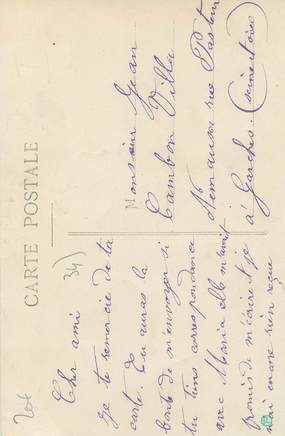 CARTE POSTALE
34)
Cher ami
je te remercie de ta
carte. Tu auras la
bonté de m'envoyer si
tu tiens correspondance
avec Maria elle m'avait
promis de m'écrire et je
n'ai encore rien reçue
Monsieur Jean
Cambon Villa
rue Pasteur
à Garches (seine et oise)